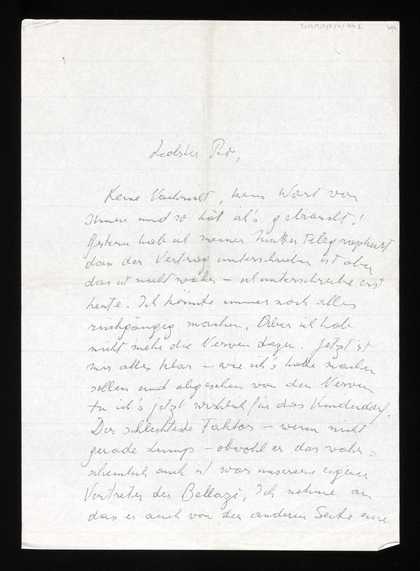 Liebster
Keine Nachricht, kein Wort von
Ihnen und so hät ich's gebraucht!
Gestern hab ich meiner Mutter telegraphiert
dass der Vertrag unterschrieben ist aber
das ist nicht wahr – ich unterschreibe erst
heute. Ich könnte immer noch alles
rückgängig machen. Aber ich hab
nicht mehr die Nerven dazu. Jetzt ist
mir alles klar – wie ich's hätte machen
sollen und abgesehen von den Nerven
tu ich's jetzt wirklich für das Kinderdorf.
Der schlechteste Faktor – wenn nicht
gerade Lump – obwohl er das wahr=
scheinlich auch ist war unserer eigener
Vertreter der Ich nehme an
das er auch von der anderen Seite eine